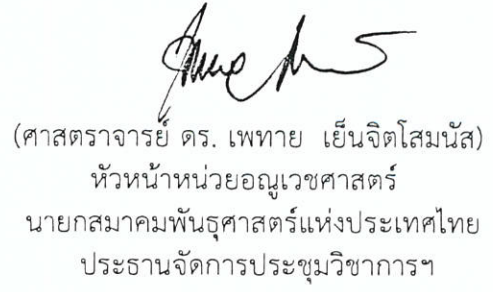 (ศาสตราจารย์ ดร. เพทาย เย็นจิตโสมนัส)
หัวหน้าหน่วยอณูเวชศาสตร์
นายกสมาคมพันธุศาสตร์แห่งประเทศไทย
ประธานจัดการประชุมวิชาการฯ